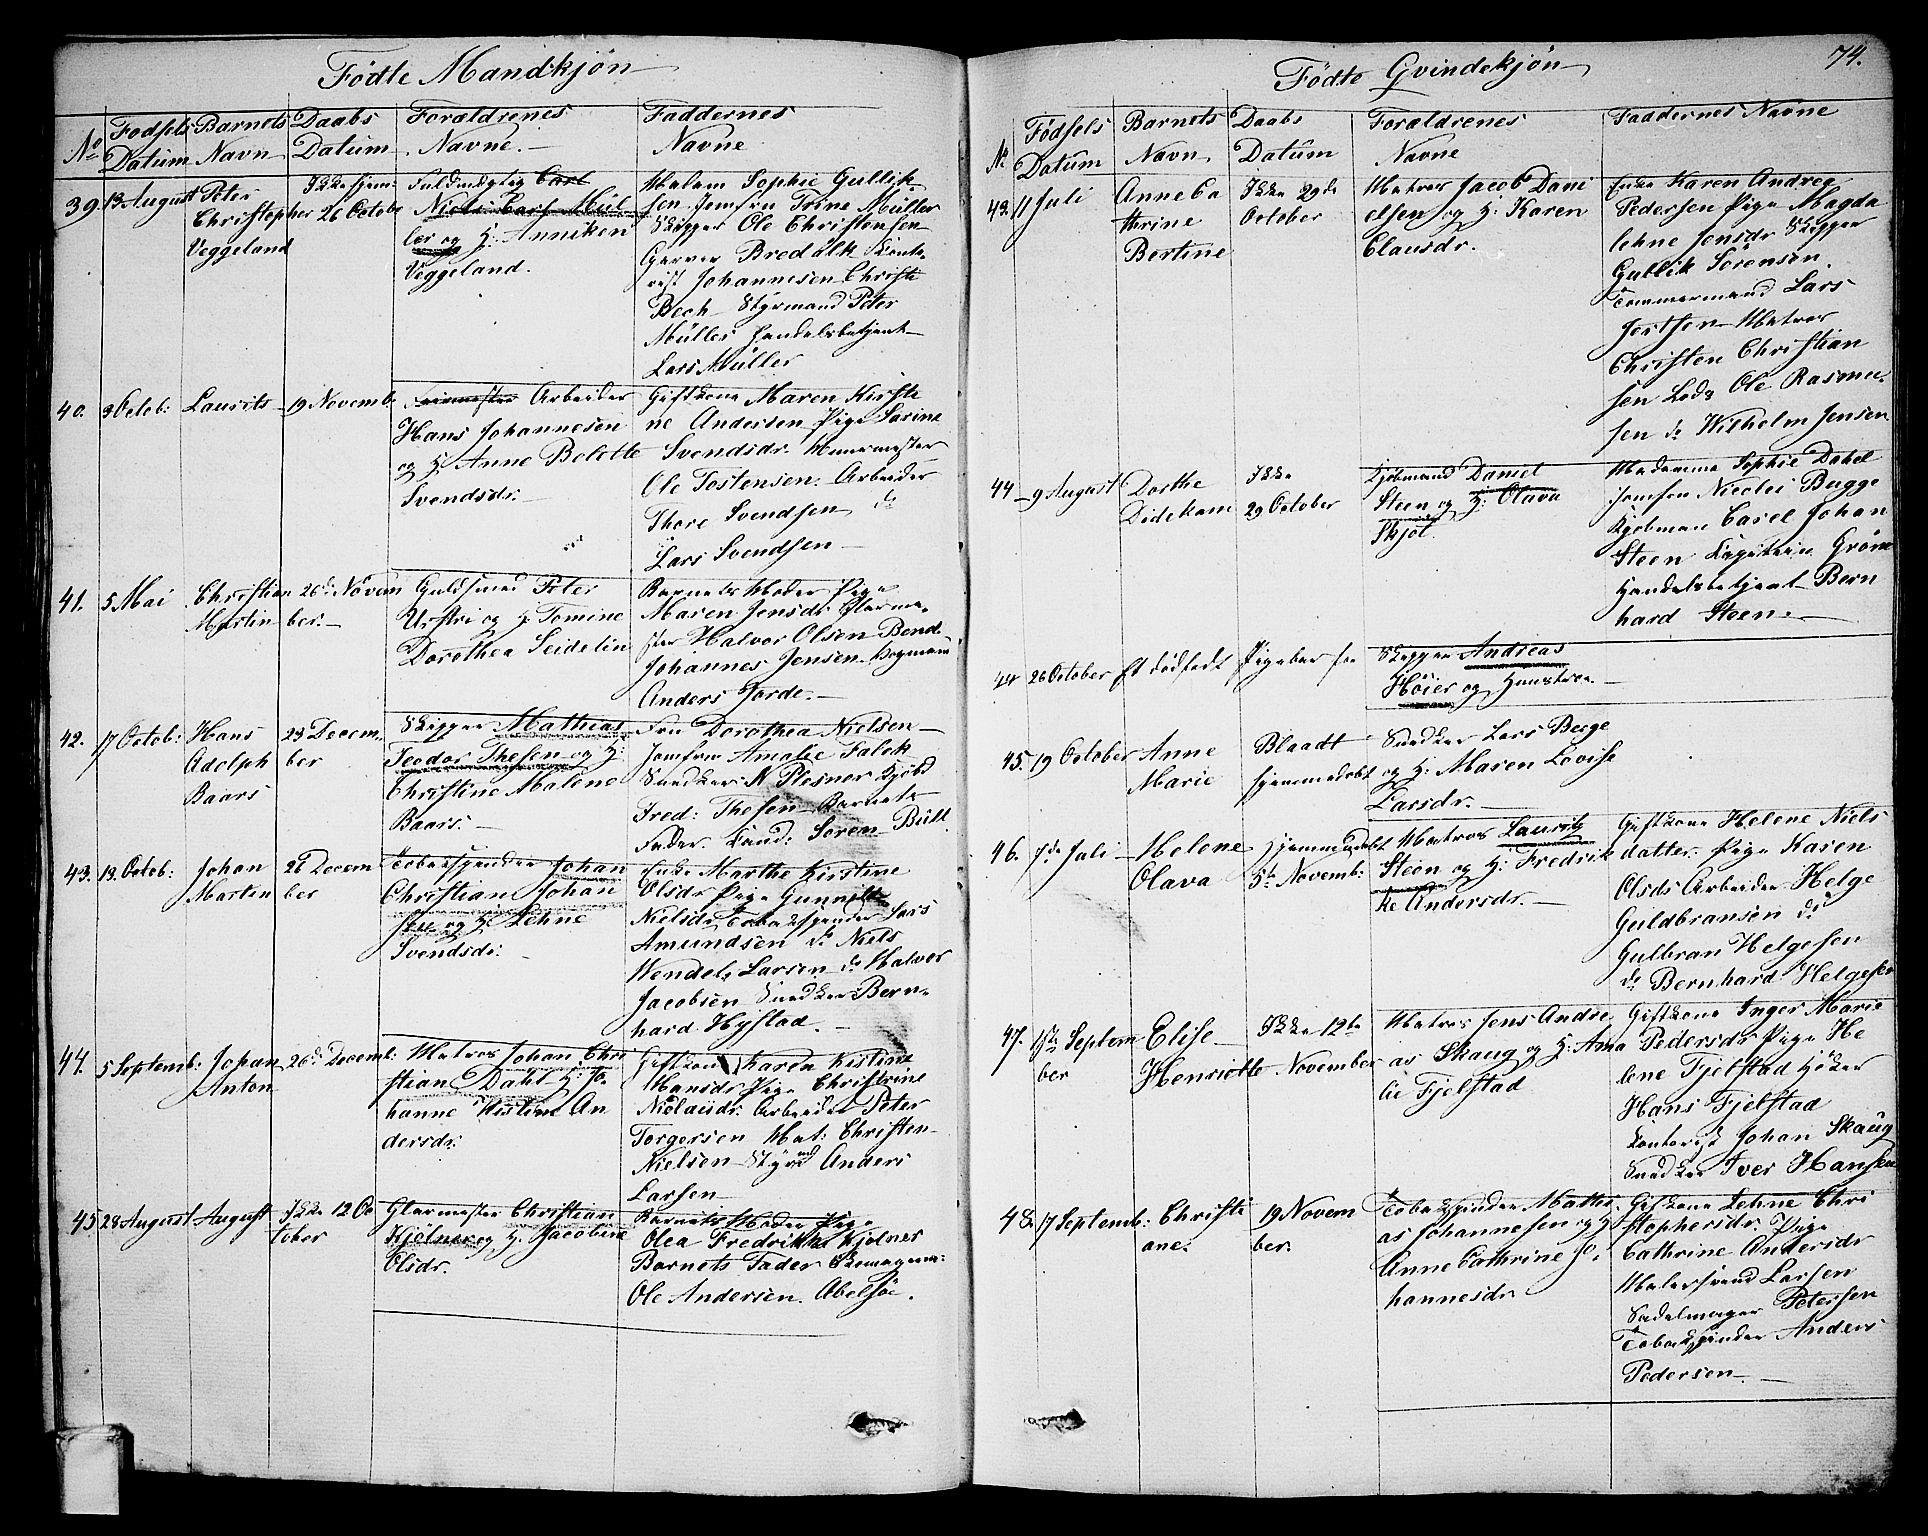 Fødte Mandkjøn
No
Fødsels Datum
Barnets Navn
Daabs Datum
Forældrenes Navne.
Faddernes Navne
39. 13 August
Peter
Christopher
Veggeland
Ikke hjem:
26 Octobr
Fuldmægtig Carl
Niels Carl Mül
ler og H: Anniken
Veggeland.
Madam Sophie Gullik
sen Jomfru Trine Müller
Skipper Ole Christensen
Garver Bredalk Konto
rist Johannesen Christi
Bech Styrmand Peter
Müller Handelsbetjent
Lars Müller
40. 3 Octob:
Laurits
19 Novemb
Arbeider
Hans Johannesen
og H: Anne Belotte
Svendsdr:
Giftkone Maren Kirsti
ne Andersen Pige Sarine
Svendsdr. Murmester
Ole Tostensen. Arbeider
Thore Svendsen do
Lars Svendsen
41. 5 Mai
Christian
Martin
26de Novem
ber.
Guldsmed Peter
og H: Tomine
Dorothea Seidelin
Barnets Moder Pige
Maren Jensdr Glarme-
ster Halvor Olsen Bend.
Johannes Jensen Bogmand
Anders Jorde.
42. 17 Octob:
Hans
Adolph
Baars
23 Decem,
ber
Skipper Mathias
Teodor Thesen og H:
Christine Malene
Baars.
Fru Dorothea Nielsen
Jomfru Amalie Falck
Snedker N Plesner Kjøbd
Fred: Thesen Barnets
Fader. Kand: Soren Bull.
43. 13. Octob:
Johan
Martin
26 Decem
ber
Tobakspinder Johan
Christian Johan
sen og H: Lehne
Svendsdr:
Enke Marthe Kirstine
Olsdr Pige Gunnild
Nielsdr Tobakspinder Lars
Amundsen do Niels
Wendel, Larsen do Halvor
Jacobsen Snedker Bern-
hard Hystad.
44. 5 Septemb:
Johan
Anton
26de Decemb:
Matros Johan Chri
stian Dahl H: Jo
hanne Kistine An
dersdr:
Giftkone Karen Kistine
Hansdr Pige Christrine
Nielausdr: Arbeider Peter
Torgersen Mat: Christen
Nielsen Styrmd Anders
Larsen
45. 28 August
August
Ikke 12 Oc
tober
Glarmester Christian
Kjölner og H. Jacobine
Olsdr.
Barnets Moder Pige
Olea Fredrikke Kjolner
Barnets Fader Skomagerm:
Ole Andersen. Abelsöe.
Födte Qvindekjön
74.
No.
Fødsels Datum
Barnets Navn
Daabs Datum
Forældrenes Navne
Faddernes Navne
43. 11 Juli
Anne Ca
thrine
Bertine
Ikke 29de
October
Matros Jacob Dani
elsen og H: Karen
Clausdr.
Enke Karen Andrea
Pedersen Pige Magda
lehne Jensdr Skipper
Gullik Sørensen.
Tømmermand Lars
Jostsen Matros
Christen Christian
sen Lods Ole Rasmu-
sen do Wilhelm Jensen
44 9 August
Dorthe
Didekam
Ikke
29 October
Kjøbmand Daniel
Steen og H: Olava
Skjöt.
Madamme Sophie Dahl
Jomfru Nicolei Bugge
Kjøbman Carel Johan
Steen Kapitein Gröne
Handelsbetjent Bern
hard Steen.
44 26 October
Et dødfødt Pigebar
Skipper Andreas
Höier og Hustroe.
45. 19 October
Anne
Marie
Blaadt
hjemmedøbt
Snedker Lars Berge
og H: Maren Lovise
Larsdr.
46. 7de Juli
Helene
Olava
hjemmedøbt
5te Novemb:
Matros Lauritz
Steen og H: Fredrik
ke Andersdr.
Giftkone Helene Niels
datter. Pige Karen
Olsdr Arbeider Helge
Guldbransen do
Gulbran Helgesen
do Bernhard Helgesen
47. 1ste Septem
ber
Elise
Henriette
Ikke 12te
November
Matros Jens Andre
as Skaug og H: Ama
lie Fjelstad
Giftkone Inger Marie
Pedersdr Pige He
lene Fjelstad Höker
Hans Fjelstad
Kontorist Johan Skaug
Snedker Iver Hansen
48. 17 Septemb:
Christi
ane.
19 Novem
ber.
Tobakspinder Mathi
as Johannesen og H
Anne Cathrine Jo,
hannesdr
Giftkone Lehne Chri
stophersdr. Pige
Cathrine Andersdr
Malersvend Larsen
Sadelmager Petersen
Tobakspinder Anders
Pedersen.